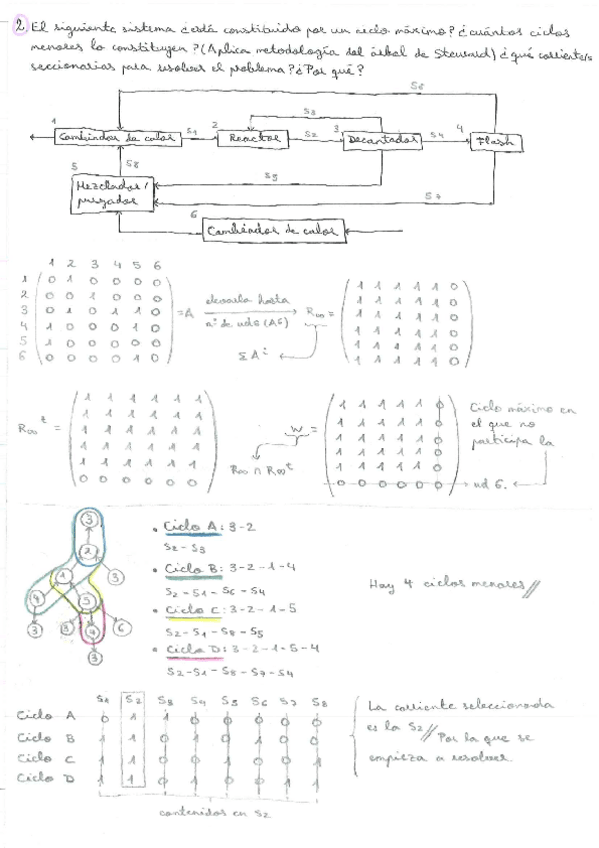 2. El siguiente sistema ¿está constituido por un ciclo máximo? ¿cuántos ciclos
menores lo constituyen? (Aplica metodología del árbol de Steward) ¿qué corriente/s
seccionarias para resolver el problema? ¿Por qué?
S6
S3
1 2 3 4
Cambiador de calor S1 Reactor S2 Decantador S4 Flash
5 S8 S5
Mezclador/
purgador
S7
6
Cambiador de calor
1 2 3 4 5 6
1 0 1 0 0 0 0
2 0 0 1 0 0 0
3 0 1 0 1 1 0
4 1 0 0 0 1 0
5 1 0 0 0 0 0
6 0 0 0 0 1 0
= A
elevarla hasta
nº de uds (A⁶)
Σ Aⁱ
R∞ =
1 1 1 1 1 0
1 1 1 1 1 0
1 1 1 1 1 0
1 1 1 1 1 0
1 1 1 1 1 0
1 1 1 1 1 0
R∞ᵗ =
1 1 1 1 1 1
1 1 1 1 1 1
1 1 1 1 1 1
1 1 1 1 1 1
1 1 1 1 1 1
0 0 0 0 0 0
W =
R∞ ∩ R∞ᵗ
1 1 1 1 1 0
1 1 1 1 1 0
1 1 1 1 1 0
1 1 1 1 1 0
1 1 1 1 1 0
0 0 0 0 0 0
Ciclo máximo en
el que no
participa la
ud 6.
3
2
1 3
4 5
3 3 4 6
3
• Ciclo A: 3-2
S2-S3
• Ciclo B: 3-2-1-4
S2-S1-S6-S4
• Ciclo C: 3-2-1-5
S2-S1-S8-S5
• Ciclo D: 3-2-1-5-4
S2-S1-S8-S7-S4
Hay 4 ciclos menores //
S1 S2 S3 S4 S5 S6 S7 S8
Ciclo A 0 1 1 0 0 0 0 0
Ciclo B 1 1 0 1 0 1 0 0
Ciclo C 1 1 0 0 1 0 0 1
Ciclo D 1 1 0 1 0 0 1 1
contenidos en S2
La corriente seleccionada
es la S2 // Por la que se
empieza a resolver.